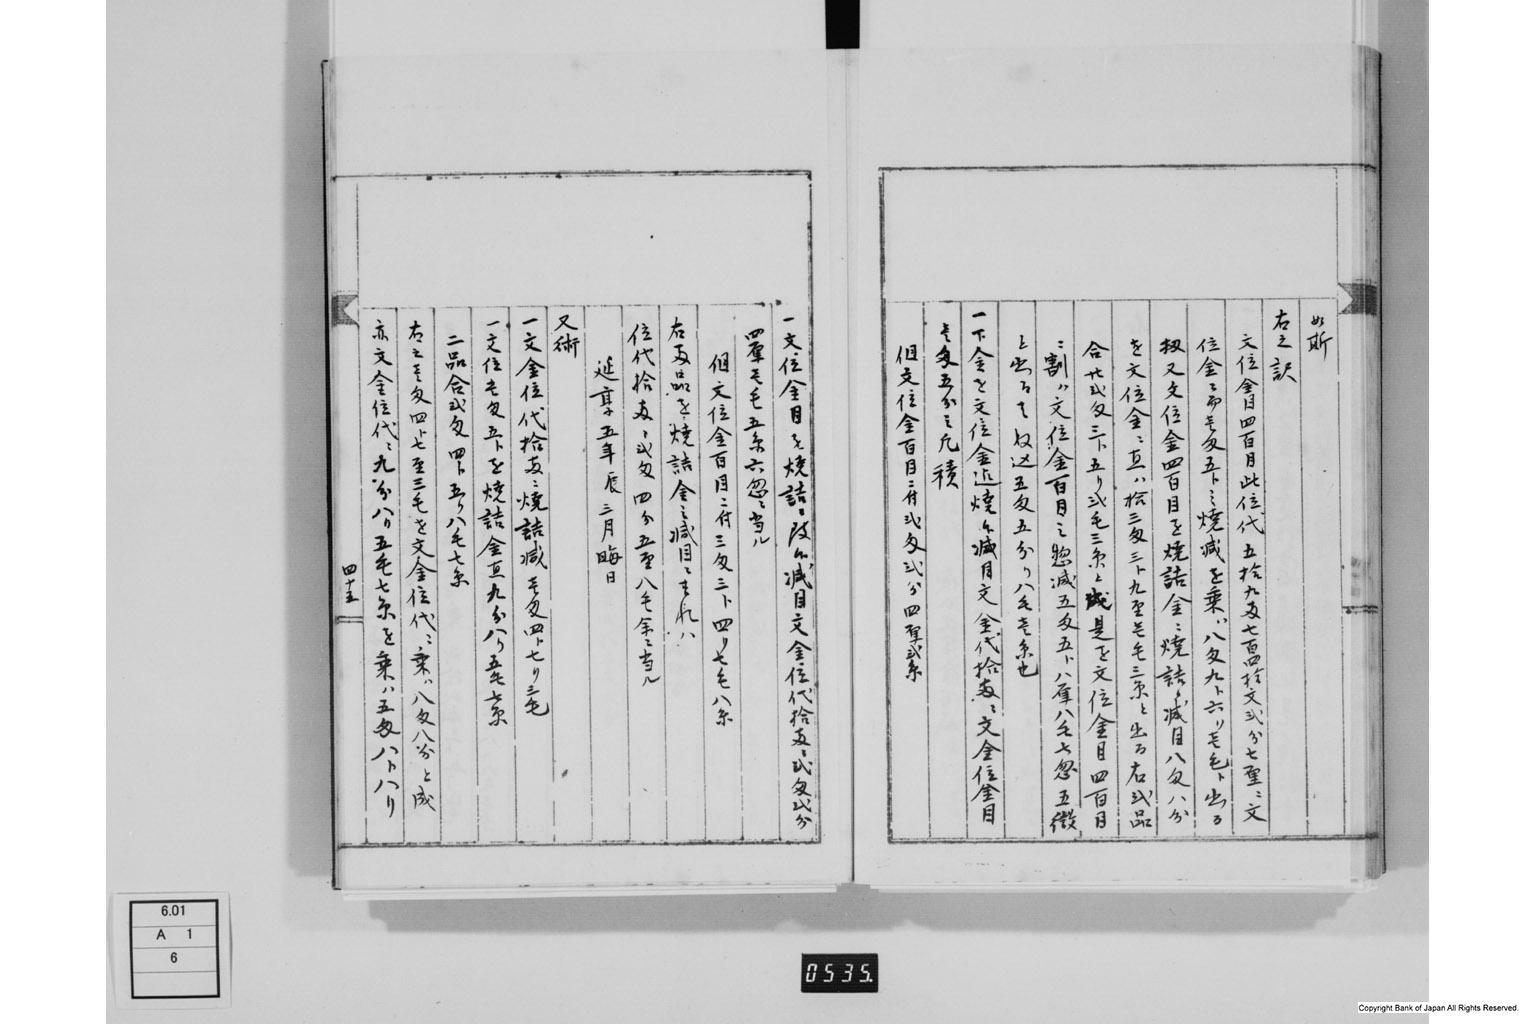 如斯
右之訳
文位金目四百目此位代五拾九両七百四拾文弐分七厘ニ文
位金壱両壱匁五卜之焼減を乗ハ八匁九卜六リ壱毛ト出る
扨又文位金四百目を焼詰金ニ焼詰減目八匁八分
を文位金ニ直ハ拾三匁三卜九厘壱毛三糸と出る右弐品
合廿弐匁三卜五リ弐毛三糸と成是を文位金目四百目
ニ割ハ文位金百目之惣減五匁五卜八厘八毛七忽五微
と出る
一下金を文位金迄焼減目文金代拾両ニ文金位金目
壱匁五分之凡積
但文位金百目ニ付弐匁弐分四厘弐糸
一文位金目を焼詰ニ致減目文金位代拾両ニ弐匁弐分
四厘壱毛五糸六忽ニ当ル
但文位金百目ニ付三匁三卜四リ七毛八糸
右両品を焼詰金之減目ニすれハ
位代拾両ニ弐匁四分五厘八毛余ニ当ル
延享五年辰三月晦日
又術
一文金位代拾両ニ焼詰減壱匁四卜七リ三毛
一文位壱匁五卜を焼詰金直九分八リ五毛七糸
二品合弐匁四卜五リ八毛七糸
右之壱匁四卜七厘三毛を文金位代ニ乗ハ八匁八分と成
亦文金位代ニ九分八リ五毛七糸を乗ハ五匁八卜八リ
四十五
6.01
A 1
6
0535.
Copyright Bank of Japan All Rights Reserved.